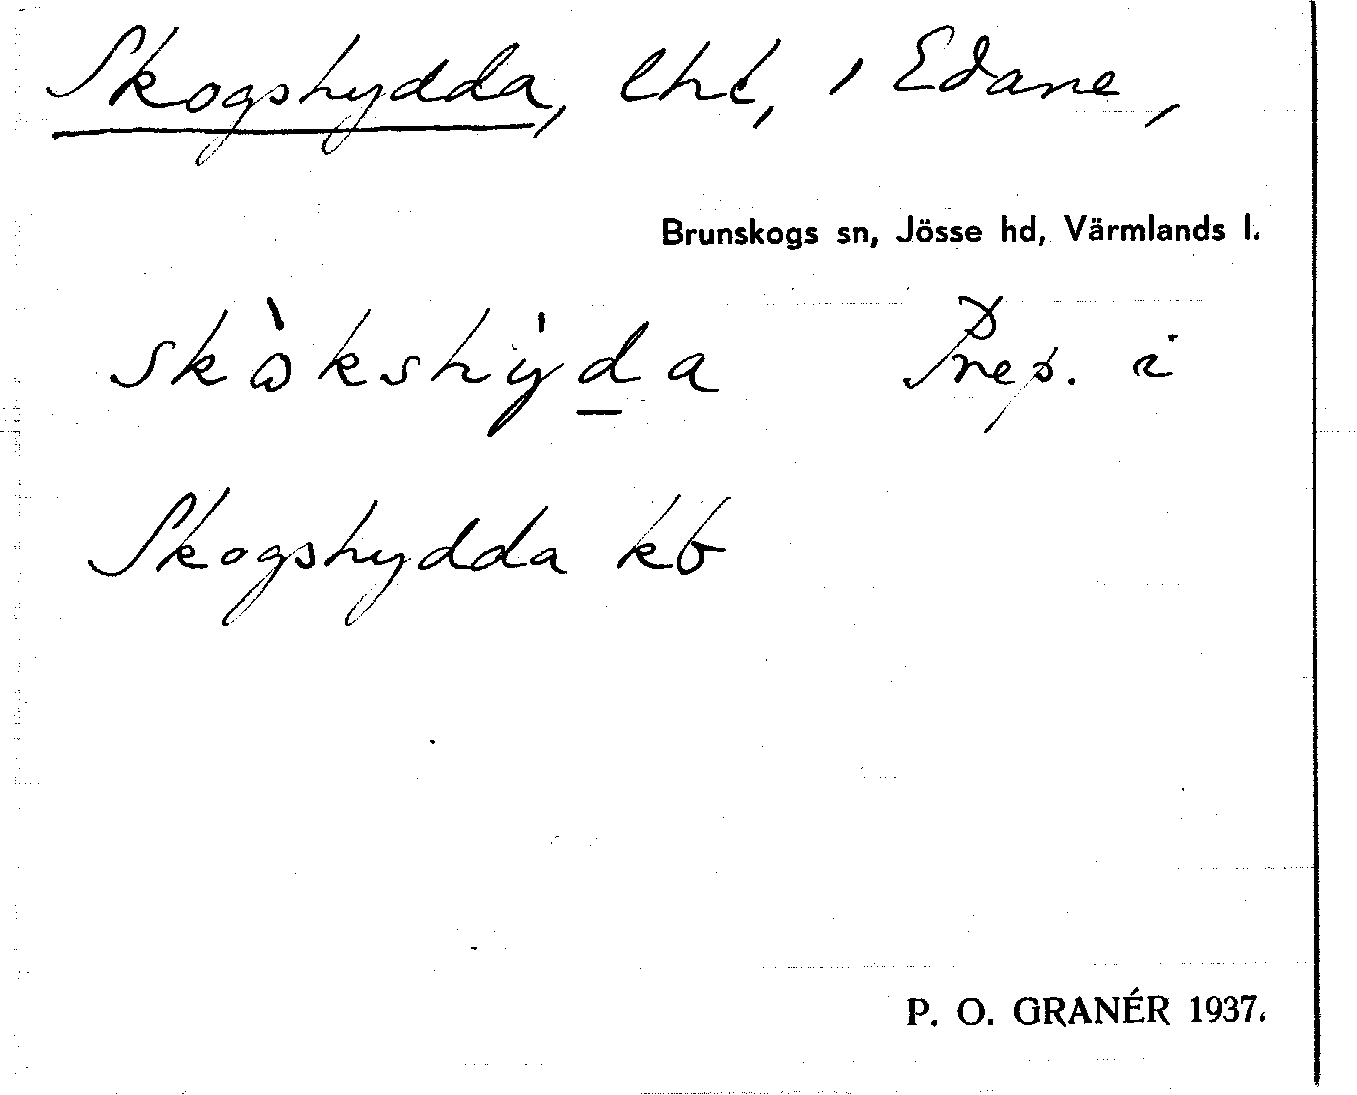 Skogshydda, lht, i Edane,
Brunskogs sn, Jösse hd, Värmlands l.
skὼkshy̍d̲a Prep. i
Skogshydda kb
P. O. GRANÉR 1937.